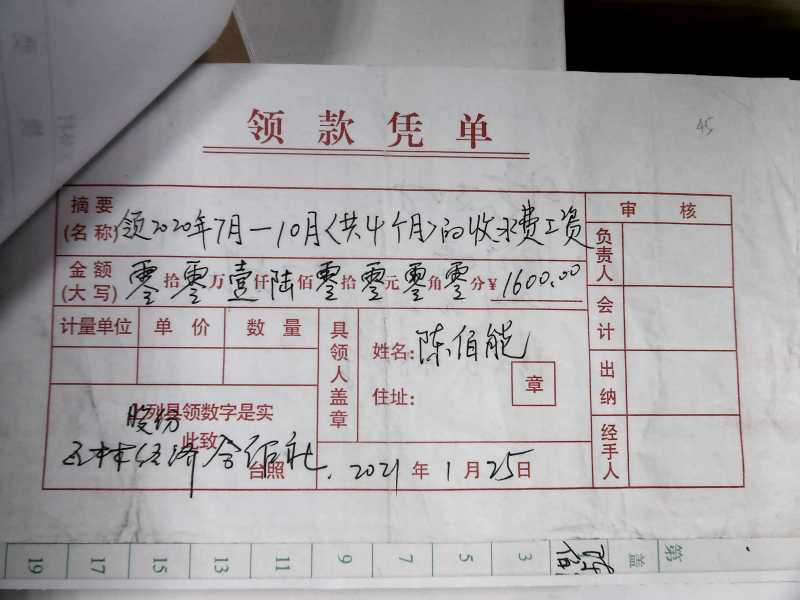 领款凭单
45
摘要
(名称) 领2020年7月—10月〈共4个月〉的收水费工资
审核
金额
(大写) 零拾零万壹仟陆佰零拾零元零角零分¥1600.00
负责人
会计
出纳
经手人
计量单位 单价 数量
具领人盖章
姓名: 陈伯能
住址:
章
列具领数字是实
股份
此致
经济合作社
台照
2021年1月25日
19 17 15 13 11 9 7 5 3
盖
第